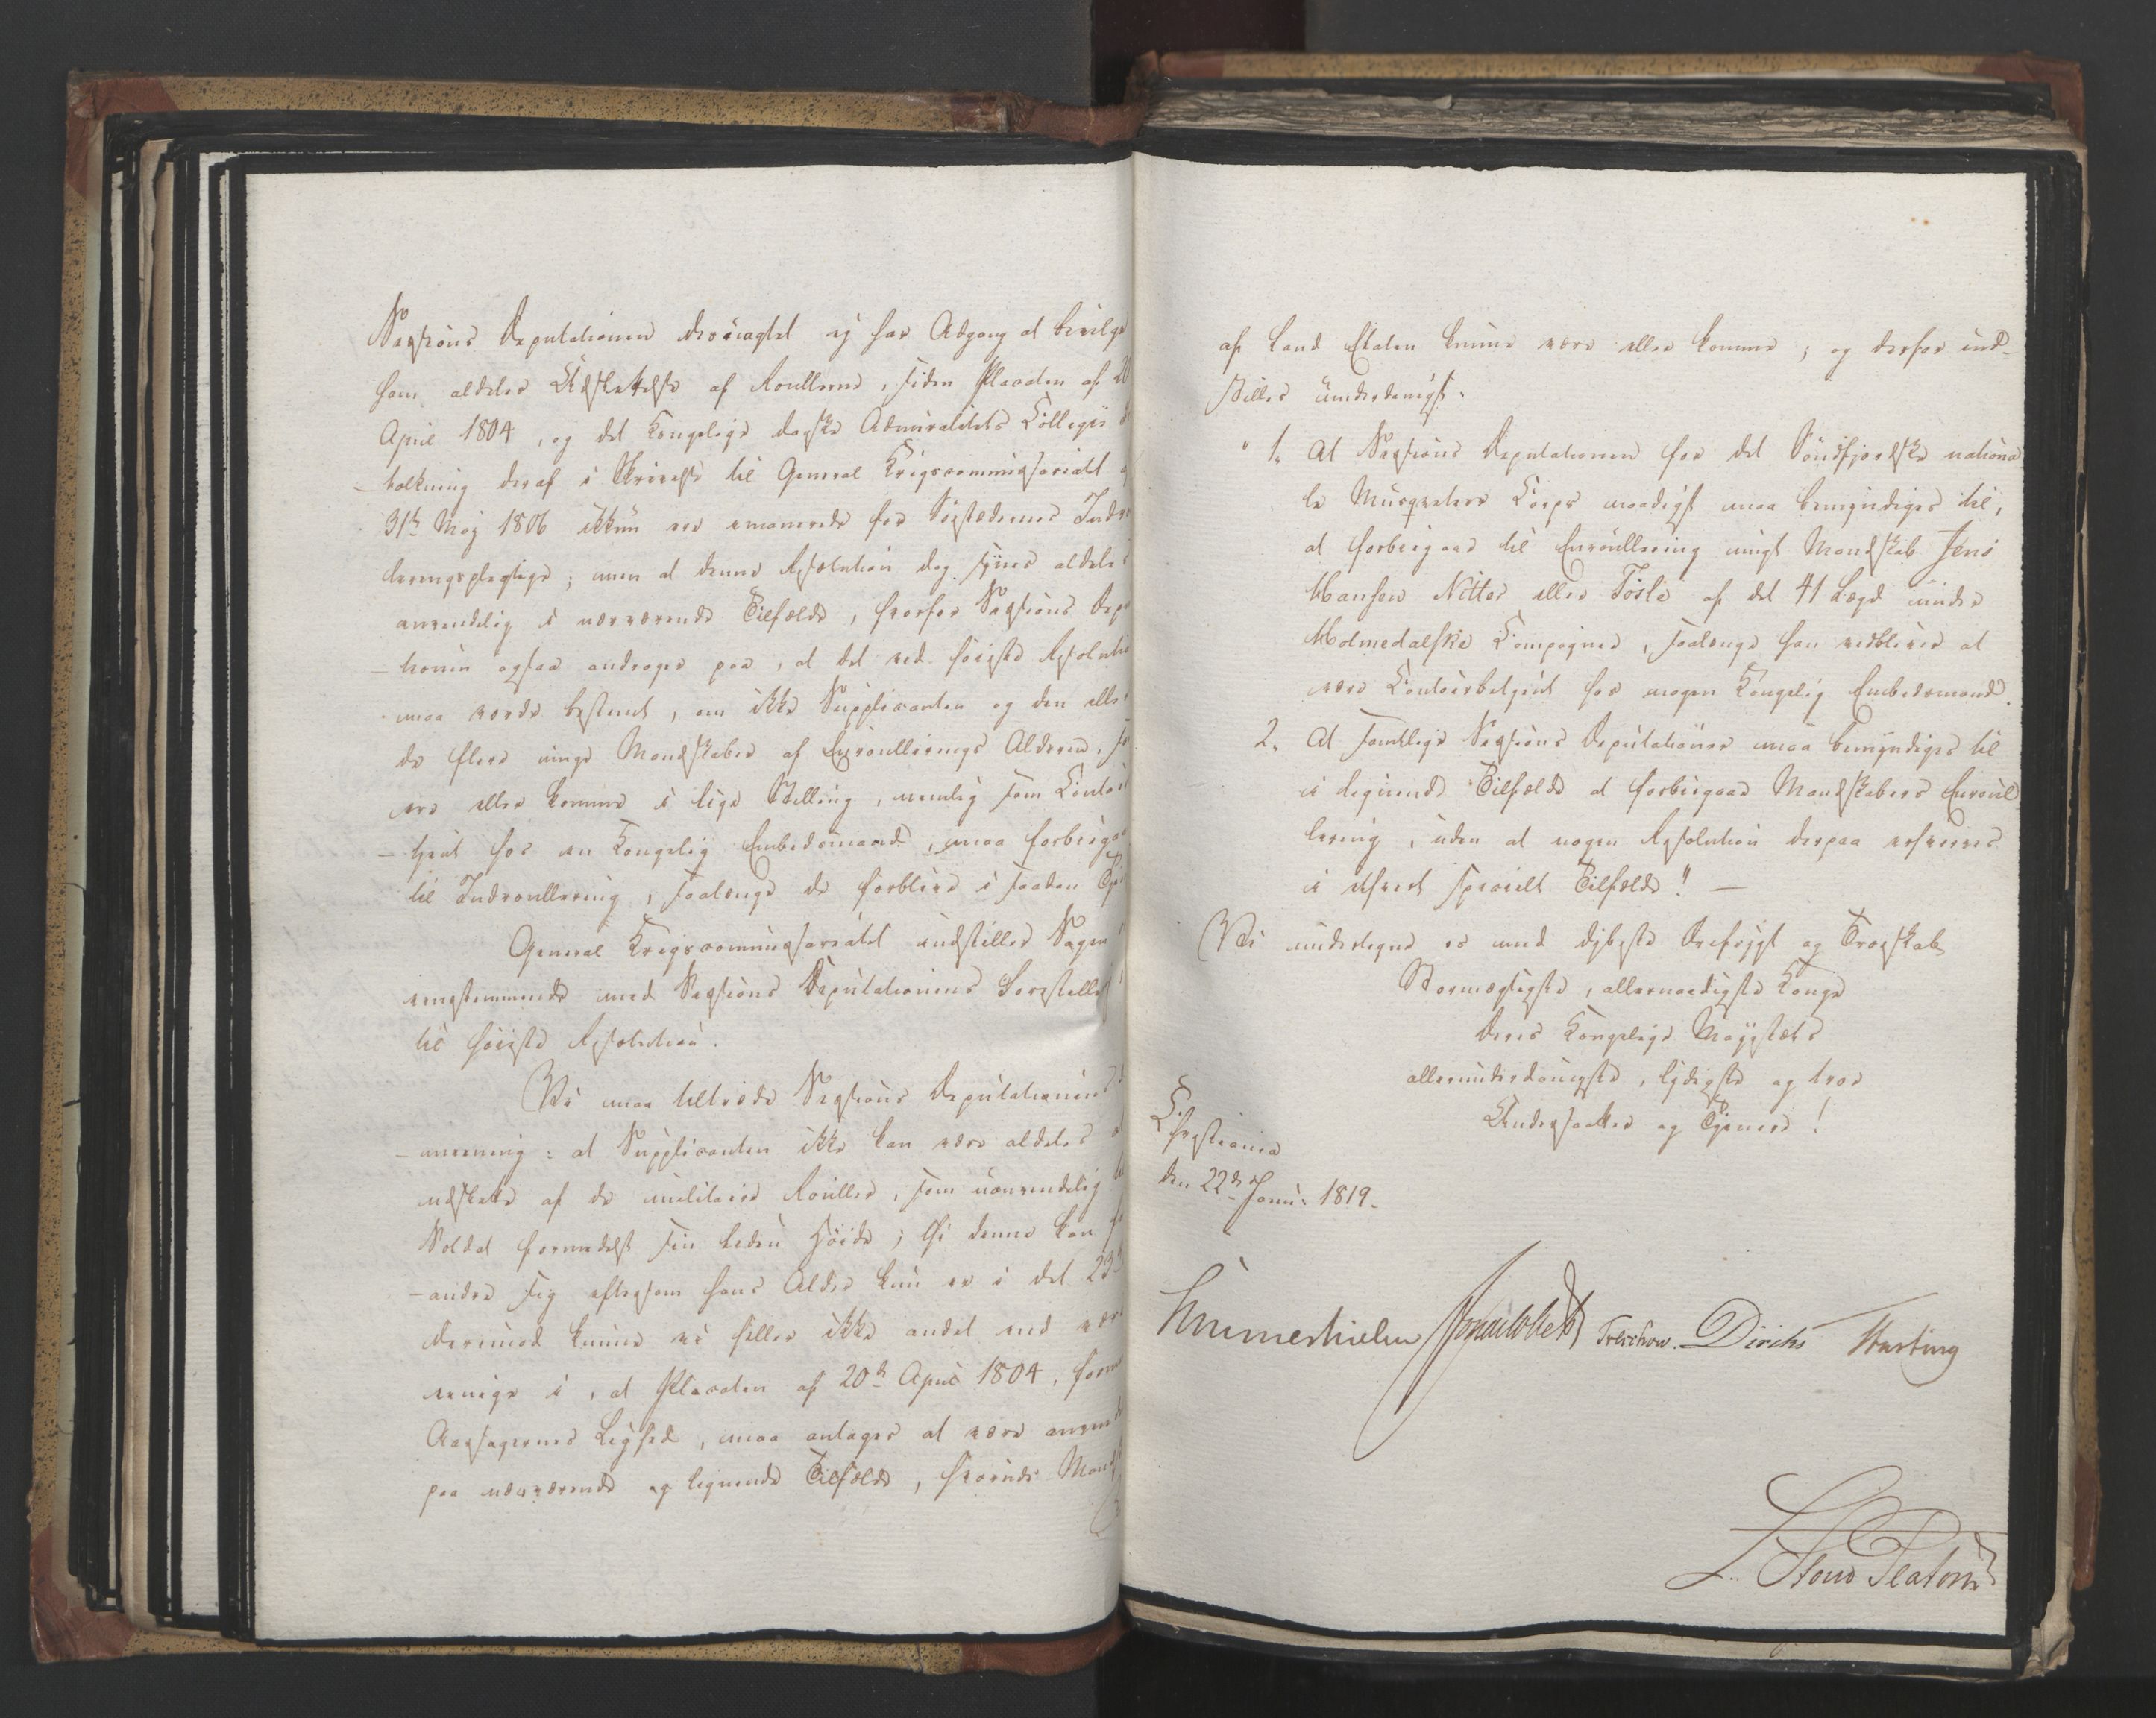 Sessions Deputationen desuagtet ej har Adgang at bevilge
ham aldeles Udslettelse af Roullerne, siden Placaten af 20
April 1804, og det Kongelige danske Admiralitets Collegii
tolkning deraf i Skrivelse til General Krigscommissariatet
31te Maj 1806 ikkun er emanerede for Søestædernes Indrou
leringspligtige; men at denne Resolution dog synes aldeles
anvendelig i nærværende Tilfælde, hvorfor Sessions Depu
-tionen ogsaa andrager paa, at det ved høieste Resolution
maa vorde bestemt, om ikke Supplicanten og den eller
de flere unge Mandskaber af Enroullerings Alderen, som
ere eller komme i lige Stilling, nemlig som Contoir
-tjent hos en Kongelig Embedsmand, maa forbigaaes
til Indroullering, saalænge de forblive i saadan
General Krigscommissariatet indstiller Sagen
eenstemmende med Sessions Deputationens Forestilling
til høieste Resolution.
Vi maa tiltræde Sessions Deputationens
-meening: at Supplicanten ikke kan være aldeles at
udslette af de militaire Rouller, som uanvendelig til
Soldat formedelst sin liden Høide; thi denne kan for
-andre sig eftersom hans Alder kun er i det 23de
derimod kunne vi heller ikke andet end være
eenige i, at Placaten af 20de April 1804, formedelst
Aarsagernes Liighed, maa antages at være anvendelig
paa nærværende og lignende Tilfælde, hvorved Mandsk
af Land Etaten kunne være eller komme; og derfor ind-
stilles underdanigst:
" 1. At Sessions Deputationen for det Søndfjordske nationa
le Musqueteer Corps naadigst maa bemyndiges til,
at forbiegaae til Enroullering ungt Mandskab Jens
Hansen Nitter eller Tosle af det 41 Lægd under
Holmedalske Compagnie, saalænge han vedbliver at
være Contoirbetjent hos nogen Kongelig Embedsmand.
2. At samtlige Sessions Deputationer maa bemyndiges til
i lignende Tilfælde at forbiegaae Mandskabers Enroul
lering, uden at nogen Resolution derpaa erhverves
i ethvert specielt Tilfælde." —
Vi undertegne os med dybeste Ærefrygt og Troskab
Stormægtigste, allernaadigste Konge
Deres Kongelige Majestæts
allerunderdanigste, lydigste og troe
Undersaatter og Tjenere!
Christiania
den 22de Janu: 1819.
Hummerhielm Sommerfeldt Treschow. Diriks Hasting
L. Stoud Platou